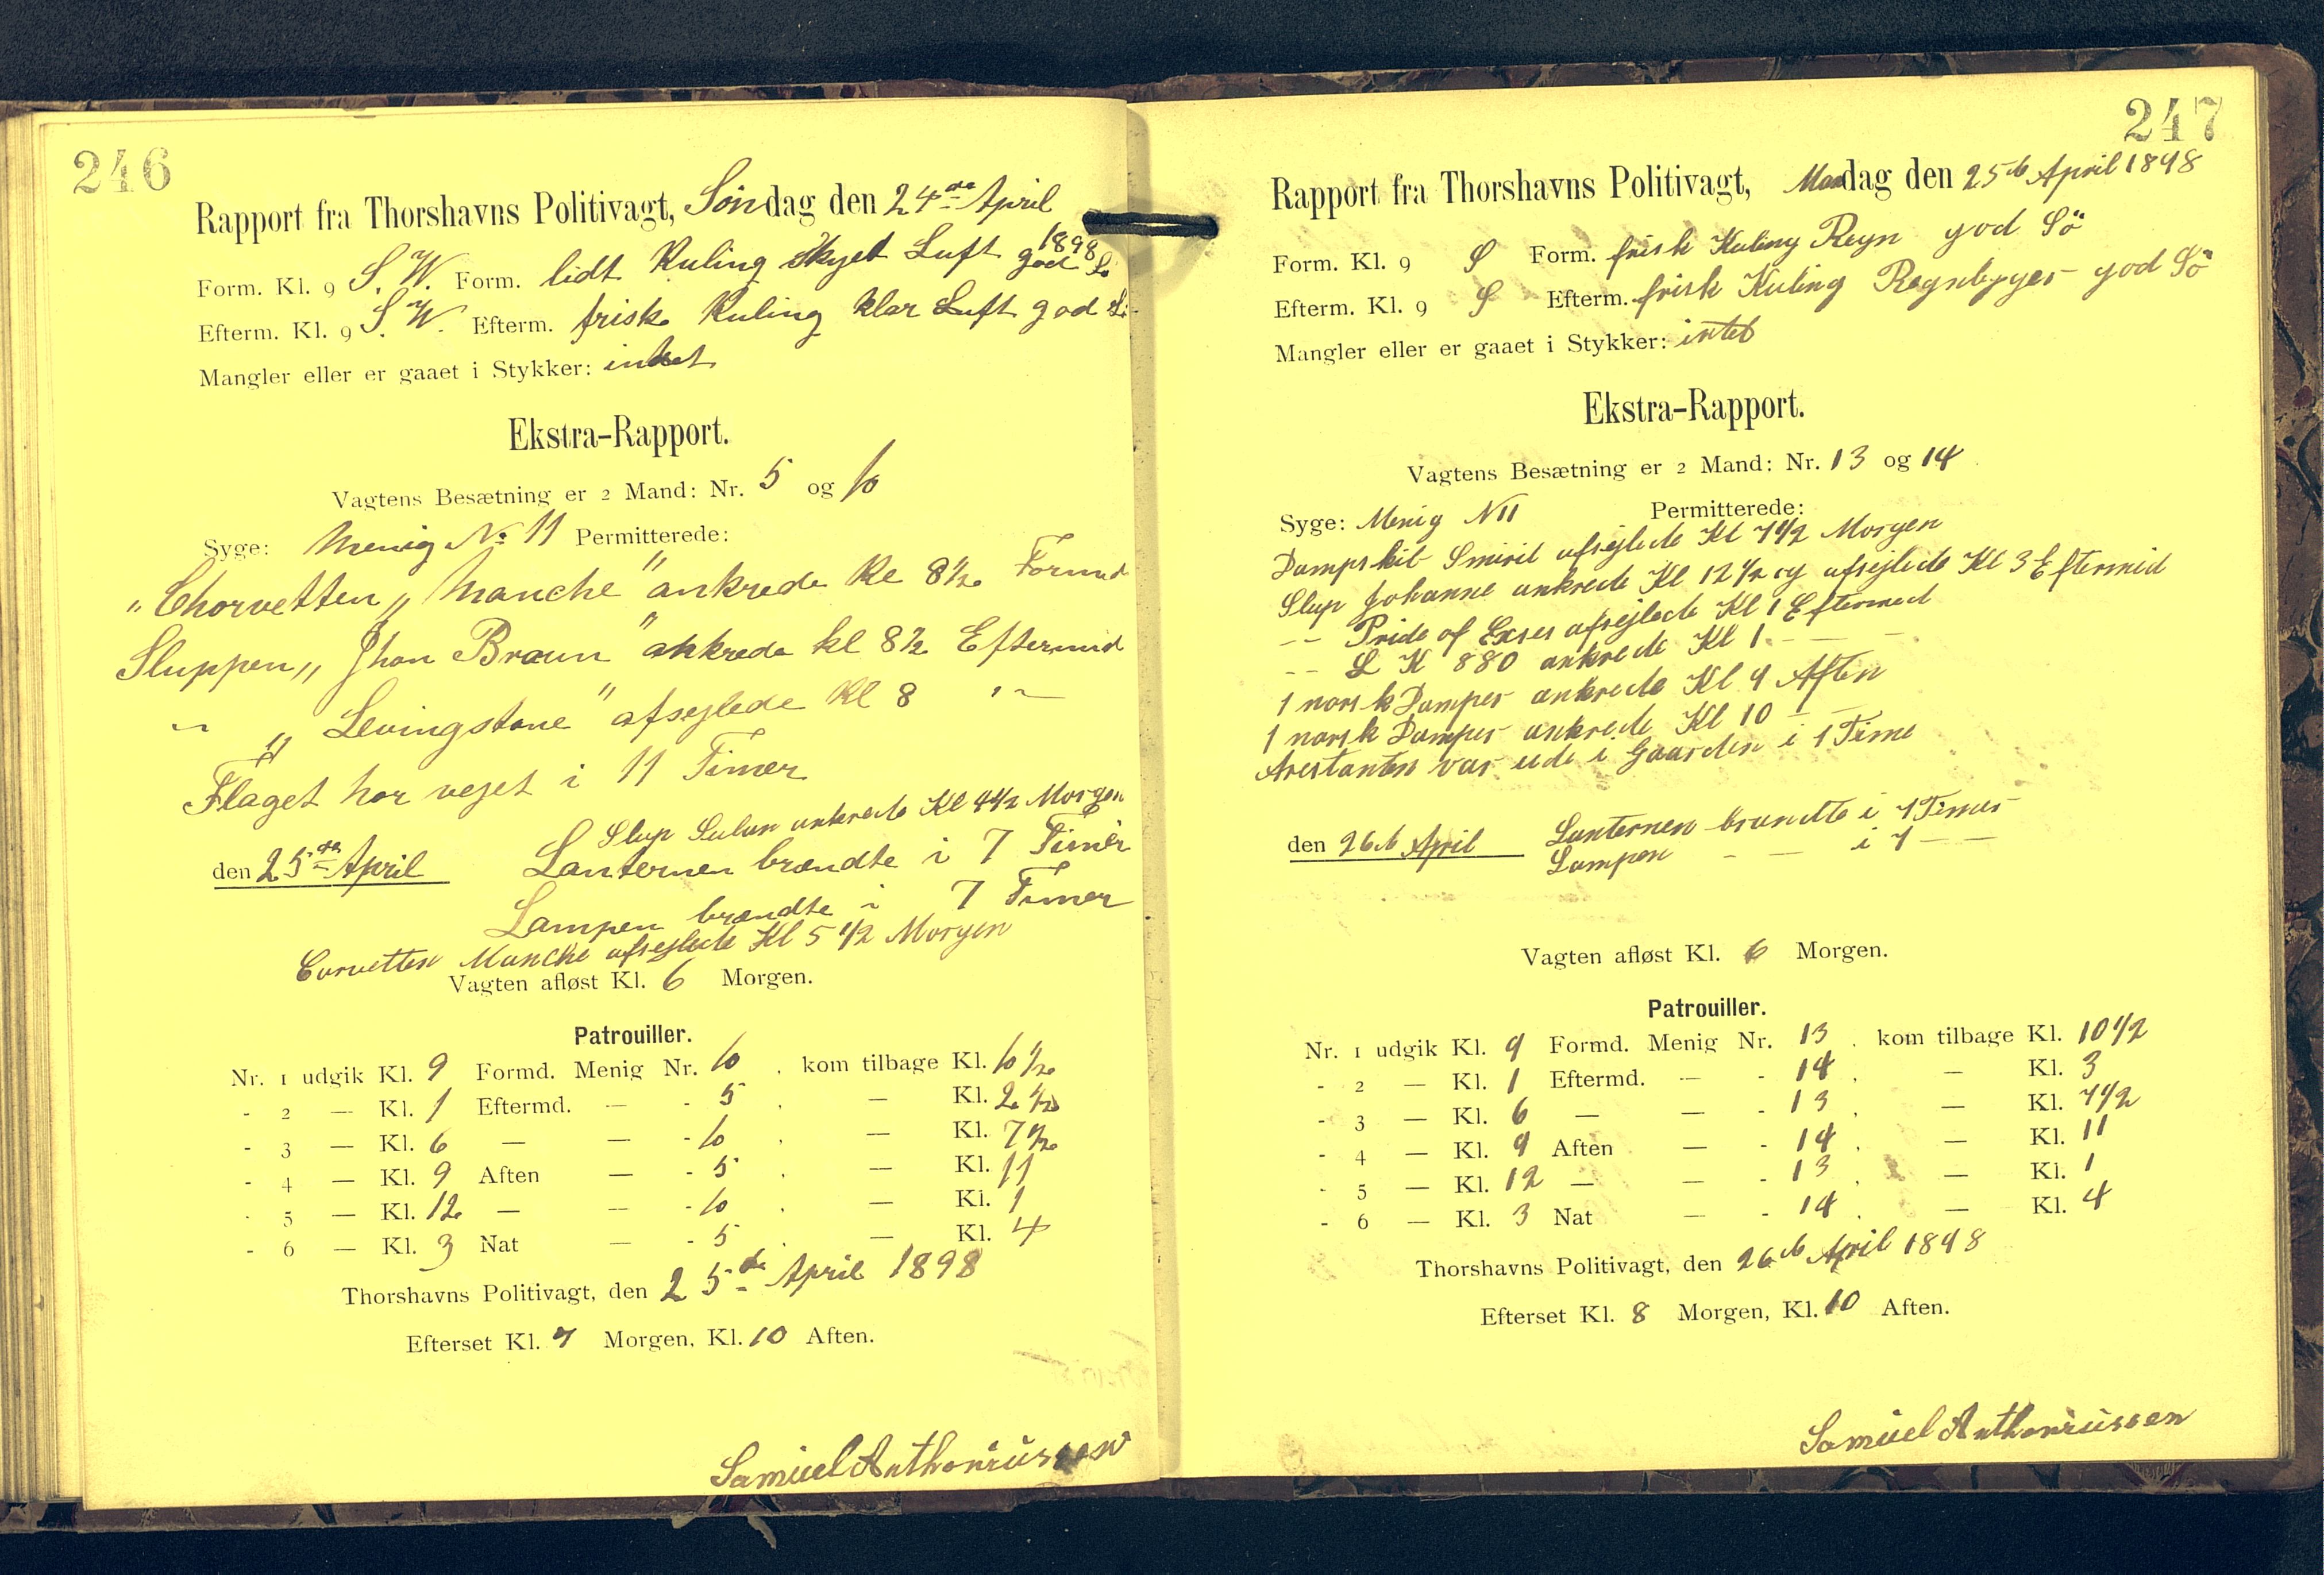 246
Rapport fra Thorshavns Politivagt, Søndag den 24de April
1898
Form. Kl. 9 S. W. Form. lidt Kuling Skyet Luft god Sø
Efterm. Kl. 9 S. W. Efterm. friske Kuling klar Luft god Sø
Mangler eller er gaaet i Stykker: intet
Ekstra-Rapport.
Vagtens Besætning er 2 Mand: Nr. 5 og 10
Syge: Menig No 11 Permitterede:
"Chorvetten „Manche" ankrede Kl 8½ Formd
Sluppen „Jhon Braun" ankrede kl 8½ Eftermid
" „Levingstone" afsejlede Kl 8 "
Flaget har vejet i 11 Timer
Slup ankrede Kl 4½ Morgen
den 25de April Lanternen brændte i 7 Timer
Lampen brændte i 7 Timer
Corvetten Manche afsejlede Kl 5 1/2 Morgen
Vagten afløst Kl. 6 Morgen.
Patrouiller.
Nr. 1 udgik Kl. 9 Formd. Menig Nr. 10 . kom tilbage Kl. 10½
- 2 — Kl. 1 Eftermd. — - 5 . — Kl. 2½
- 3 — Kl. 6 — — - 10 . — Kl. 7½
- 4 — Kl. 9 Aften — - 5 . — Kl. 11
- 5 — Kl. 12 — — - 10 . — Kl. 1
- 6 — Kl. 3 Nat — - 5 . — Kl. 4
Thorshavns Politivagt, den 25de April 1898
Efterset Kl. 7 Morgen, Kl. 10 Aften.
Samuel Anthoniussen
247
Rapport fra Thorshavns Politivagt, Mandag den 25de April 1898
Form. Kl. 9 S Form. frisk Kuling Regn god Sö
Efterm. Kl. 9 S Efterm. frisk Kuling Regnbyger god Sö
Mangler eller er gaaet i Stykker: intet
Ekstra-Rapport.
Vagtens Besætning er 2 Mand: Nr. 13 og 14
Syge: Menig N 11 Permitterede:
Dampskib Smiril afsejlede Kl 7 1/2 Morgen
Slup Johanne ankrede Kl 12 1/2 og afsejlede Kl 3 Eftermid
-- Pride of Exses afsejlede Kl 1 Eftermed
-- L K 880 ankrede Kl 1 - — -
1 norsk Damper ankrede Kl 9 Aften
1 norsk Damper ankrede Kl 10 - —
Arestanten var ude i Gaarden i 1 Time
den 26de April Lanternen brændte i 7 Timer
Lampen - — i 7 — —
Vagten afløst Kl. 6 Morgen.
Patrouiller.
Nr. 1 udgik Kl. 9 Formd. Menig Nr. 13 . kom tilbage Kl. 10 1/2
- 2 — Kl. 1 Eftermd. — - 14 . — Kl. 3
- 3 — Kl. 6 — — - 13 . — Kl. 7 1/2
- 4 — Kl. 9 Aften — - 14 . — Kl. 11
- 5 — Kl. 12 — — - 13 . — Kl. 1
- 6 — Kl. 3 Nat — - 14 . — Kl. 4
Thorshavns Politivagt, den 26de April 1898
Efterset Kl. 8 Morgen, Kl. 10 Aften.
Samuel Anthoniussen